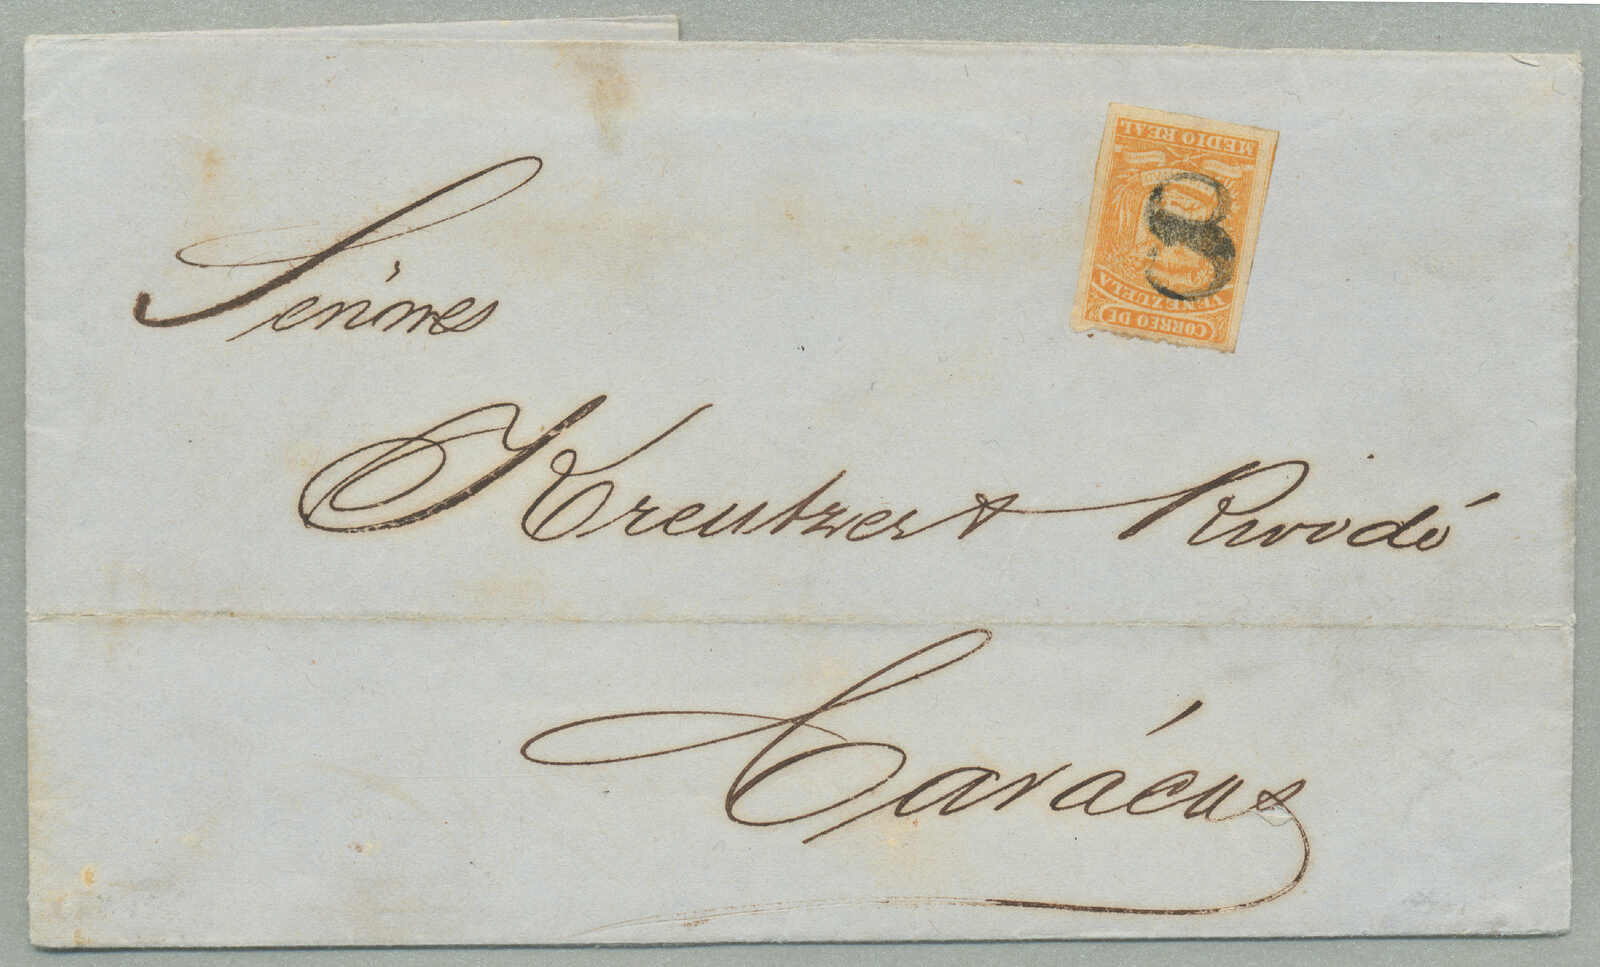 Señores
Kreutzer &
Carácas
MEDIO REAL
CORREO DE
VENEZUELA
8